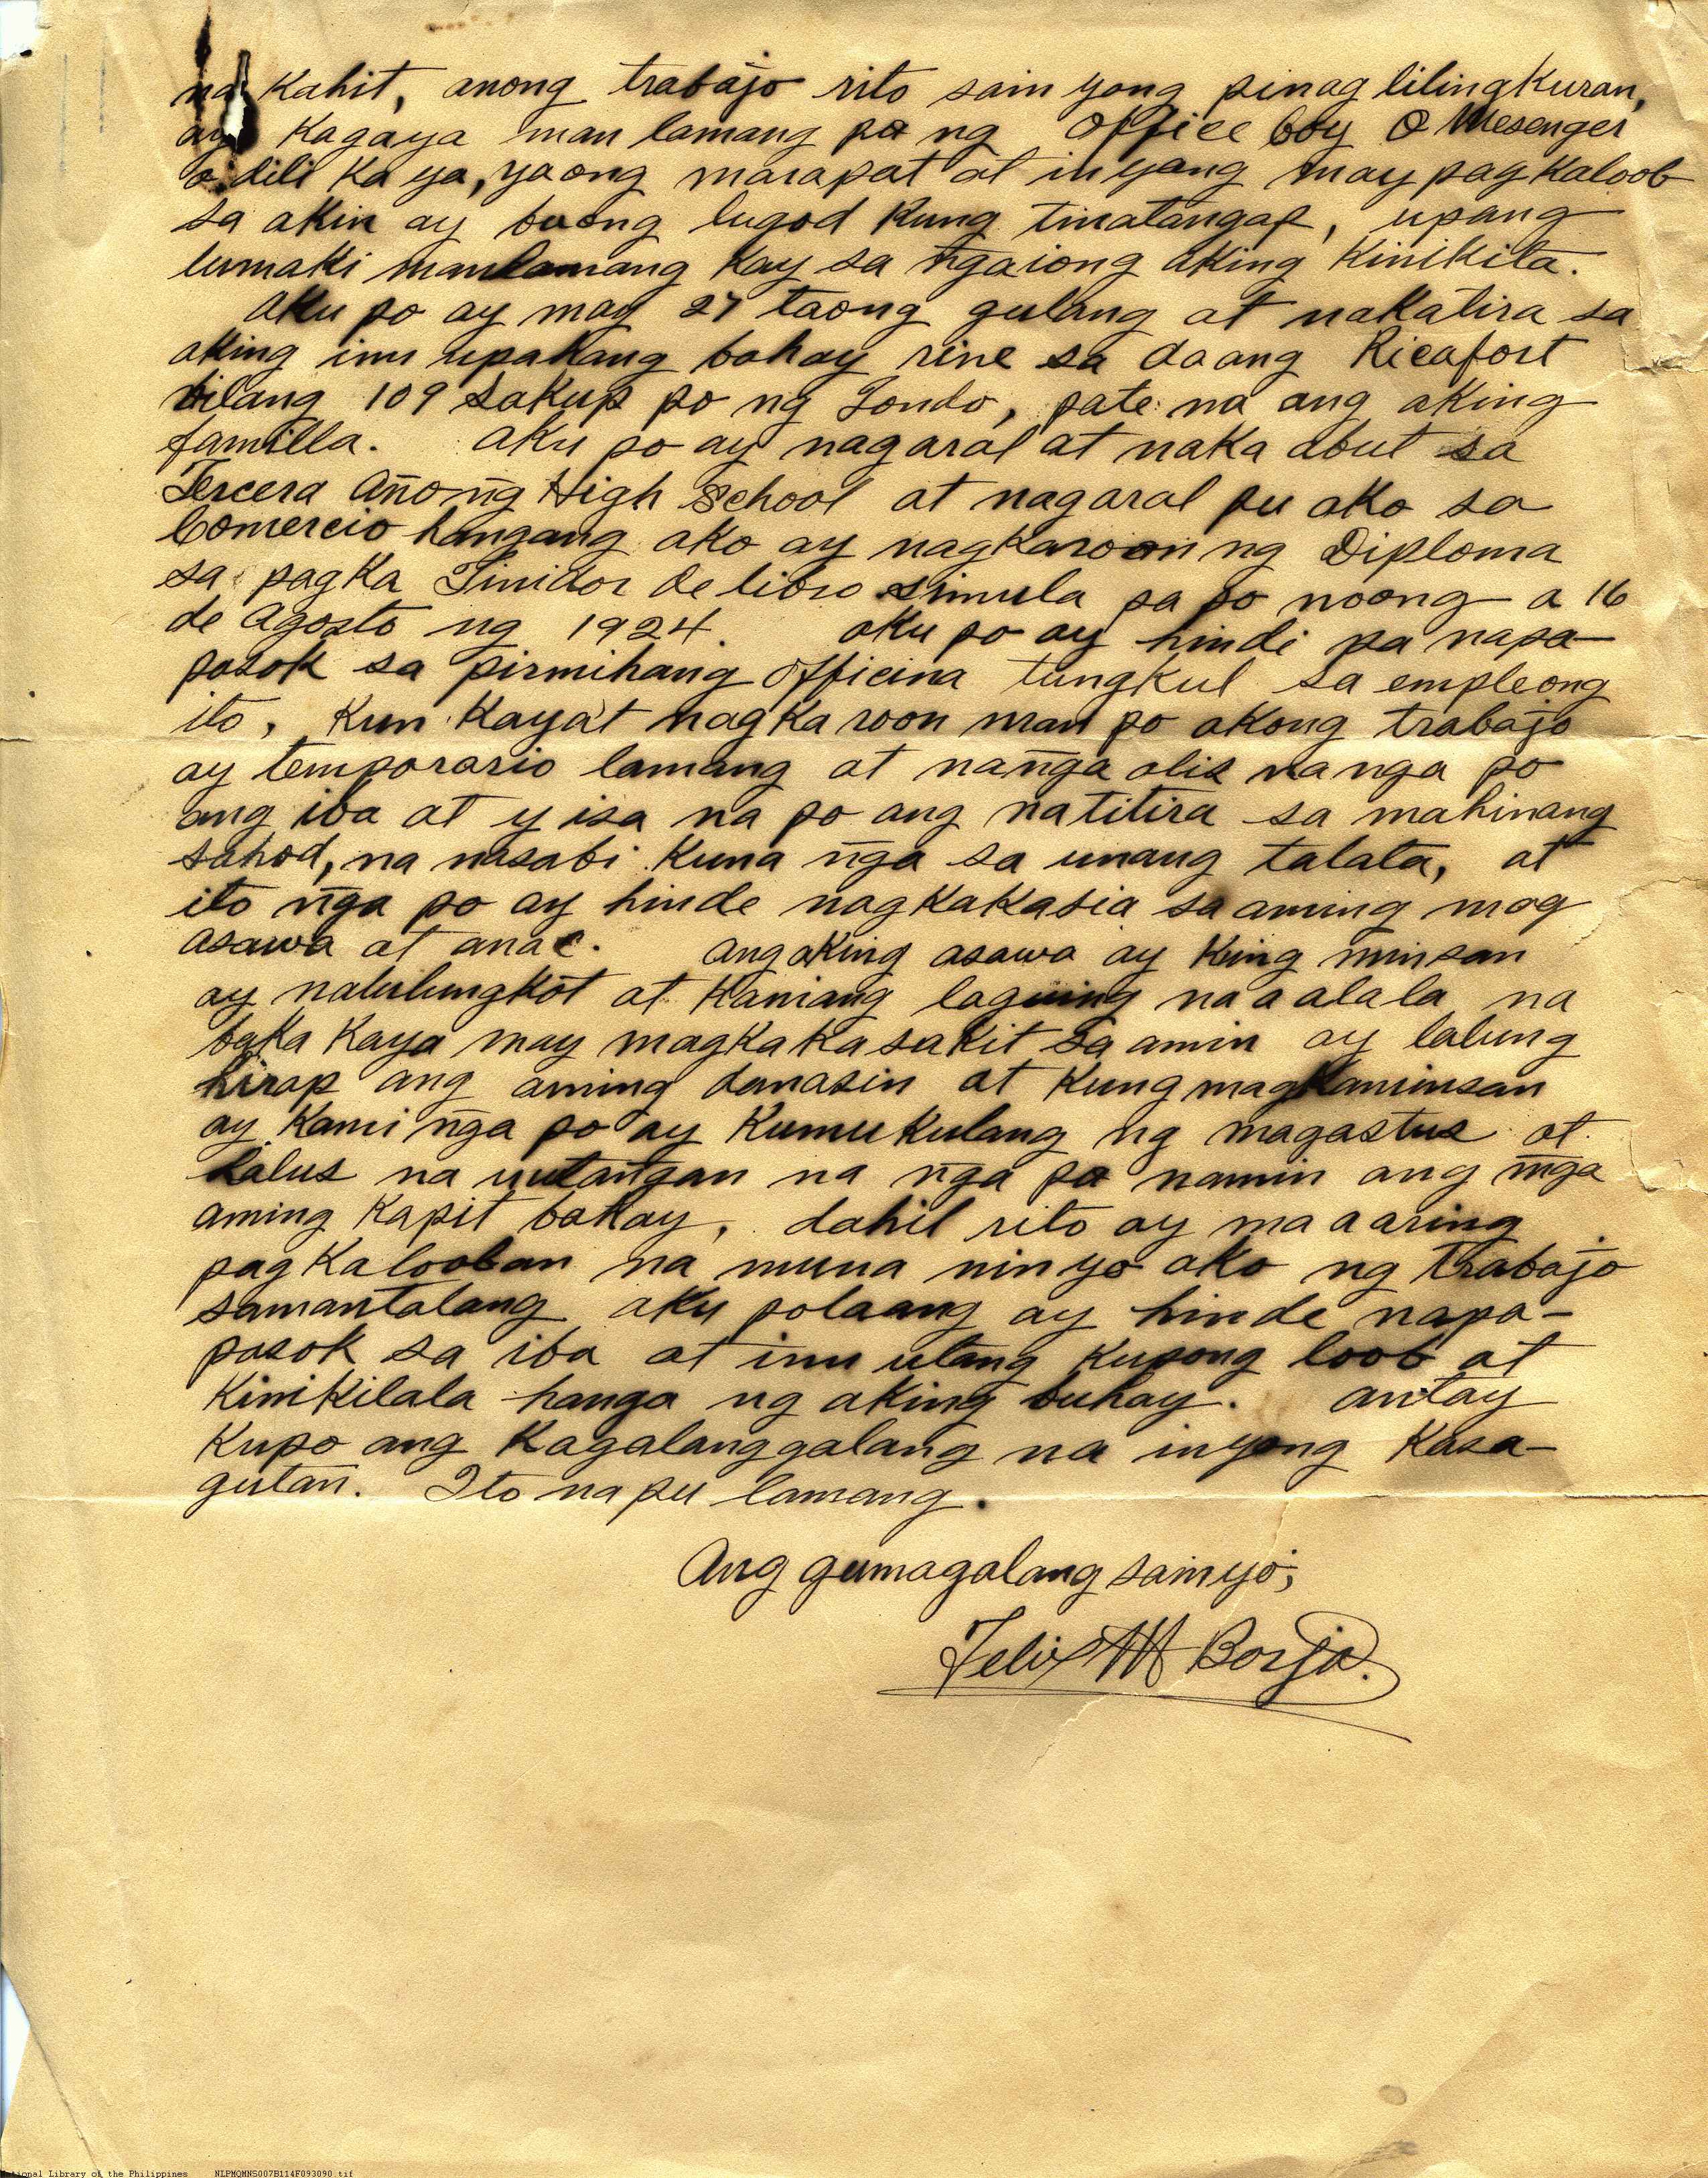 na kahit, anong trabajo rito sain yong pinag lilingkuran,
ay kagaya man lamang pa ng Office boy O Mesenger
o dili ka ya, yaong marapat at inyong may pagkaloob
sa akin ay buong lugod kung tinatangap, upang
lumaki manlamang kay sa n̄gaiong aking kinikita.
aku po ay may 27 taong gulang at nakatira sa
aking inu upahang bahay rine sa daang Ricafort
bilang 109 sakup po ng Tondo, pate na ang aking
familla. aku po ay nagaral at naka abut sa
Tercera Año n̄g High School at nagaral pu ako sa
Comercio hangang ako ay nagkaroon ng Diploma
sa pagka Tinidor de libro simula pa po noong a 16
de Agosto ng 1924. aku po ay hindi pa napa-
pasok sa pirmihang Officina tungkul sa empleong
ito, kun kaya't nagka roon man po akong trabajo
ay temporario lamang at nan̄ga alis na nga po
ang iba at y isa na po ang natitira sa mahinang
sahod, na nasabi kuna n̄ga sa unang talata, at
ito n̄ga po ay hinde nagkakasia sa aming mag
asawa at anac. ang aking asawa ay king minsan
ay nalulungkot at kaniang laguing na a alala na
baka kaya may magkaka sakit sa amin ay lalung
hirap ang aming danasin at kung magkaminsan
ay kami n̄ga po ay kumukulang ng magastus at
halus na uutan̄gan na n̄ga pa namin ang m̄ga
aming kapit bahay, dahil rito ay ma a aring
pagkalooban na muna ninyo ako ng trabajo
samantalang aku polaang ay hinde napa-
pasok sa iba at inu utang kupong loob at
kinikilala hanga ng aking buhay. antay
kupo ang kagalanggalang na inyong kasa-
gutan. Ito na pu lamang.
Ang gumagalang sainyo,
Felix M Borja.
National Library of the Philippines NLPMQMNS007B114F093090.tif